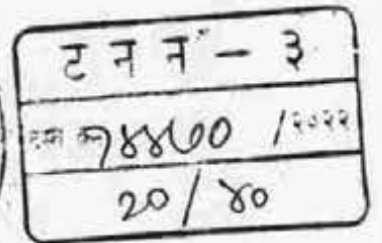 ट न न - ३
दस्त क्र. १४४७० /२०२२
२० / ४०